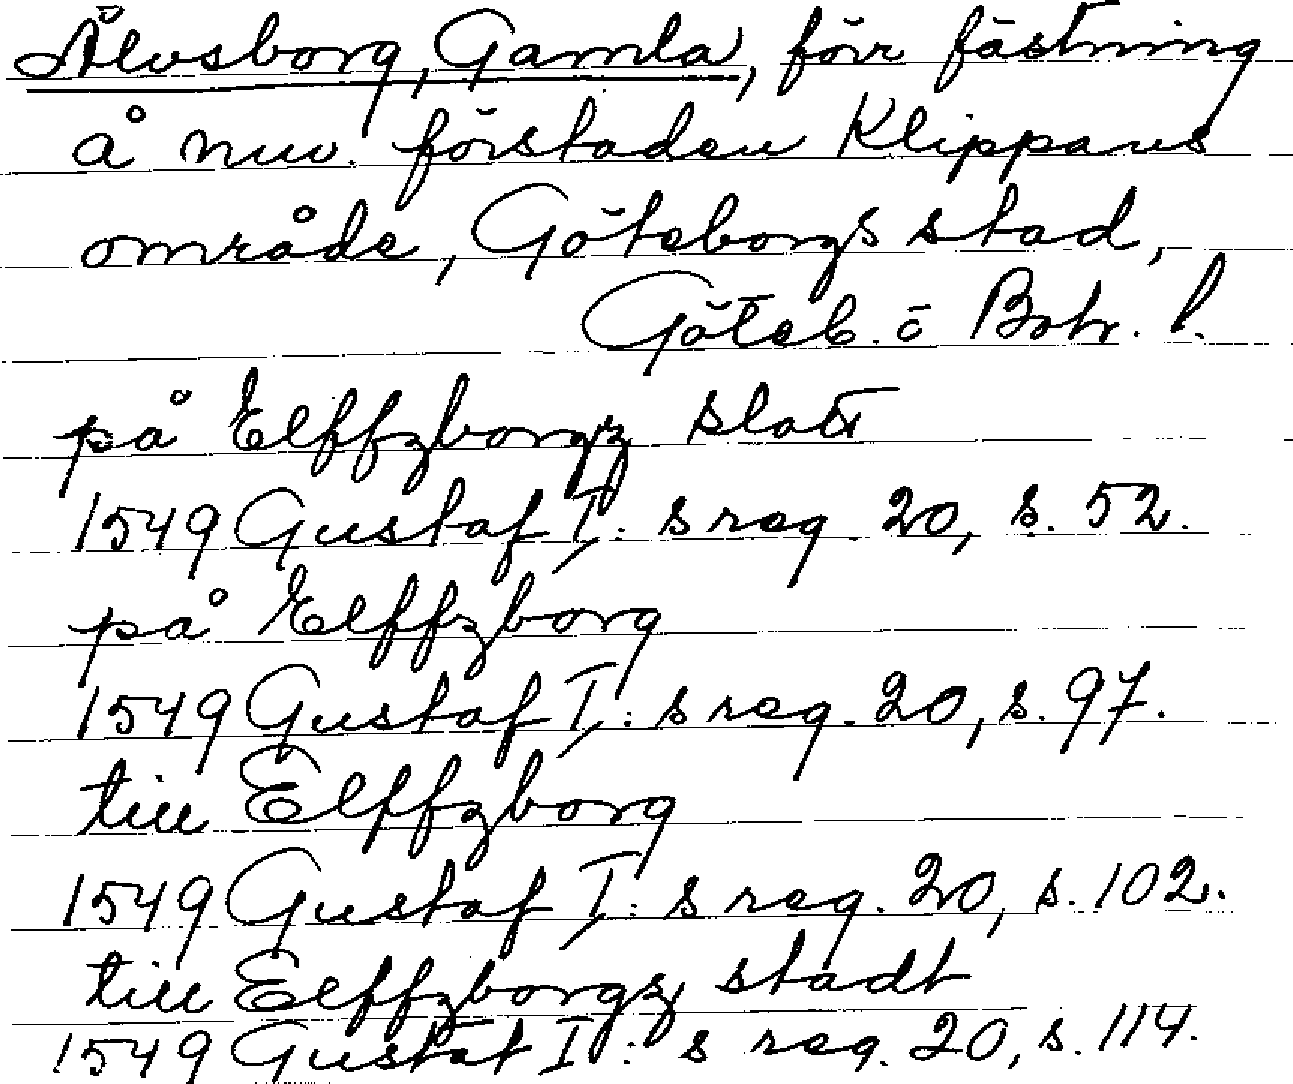 Älvsborg, Gamla, förr fästning
å nuv. förstaden Klippans
område, Göteborgs stad,
Göteb. o Boh. l.
på Elffzborgz slott
1549 Gustaf I: s reg. 20, s. 52.
på Elffzborg
1549 Gustaf I: s reg. 20, s. 97.
till Elffzborg
1549 Gustaf I: s reg. 20, s. 102.
till Elffzborgz stadt
1549 Gustaf I: s reg. 20, s. 114.